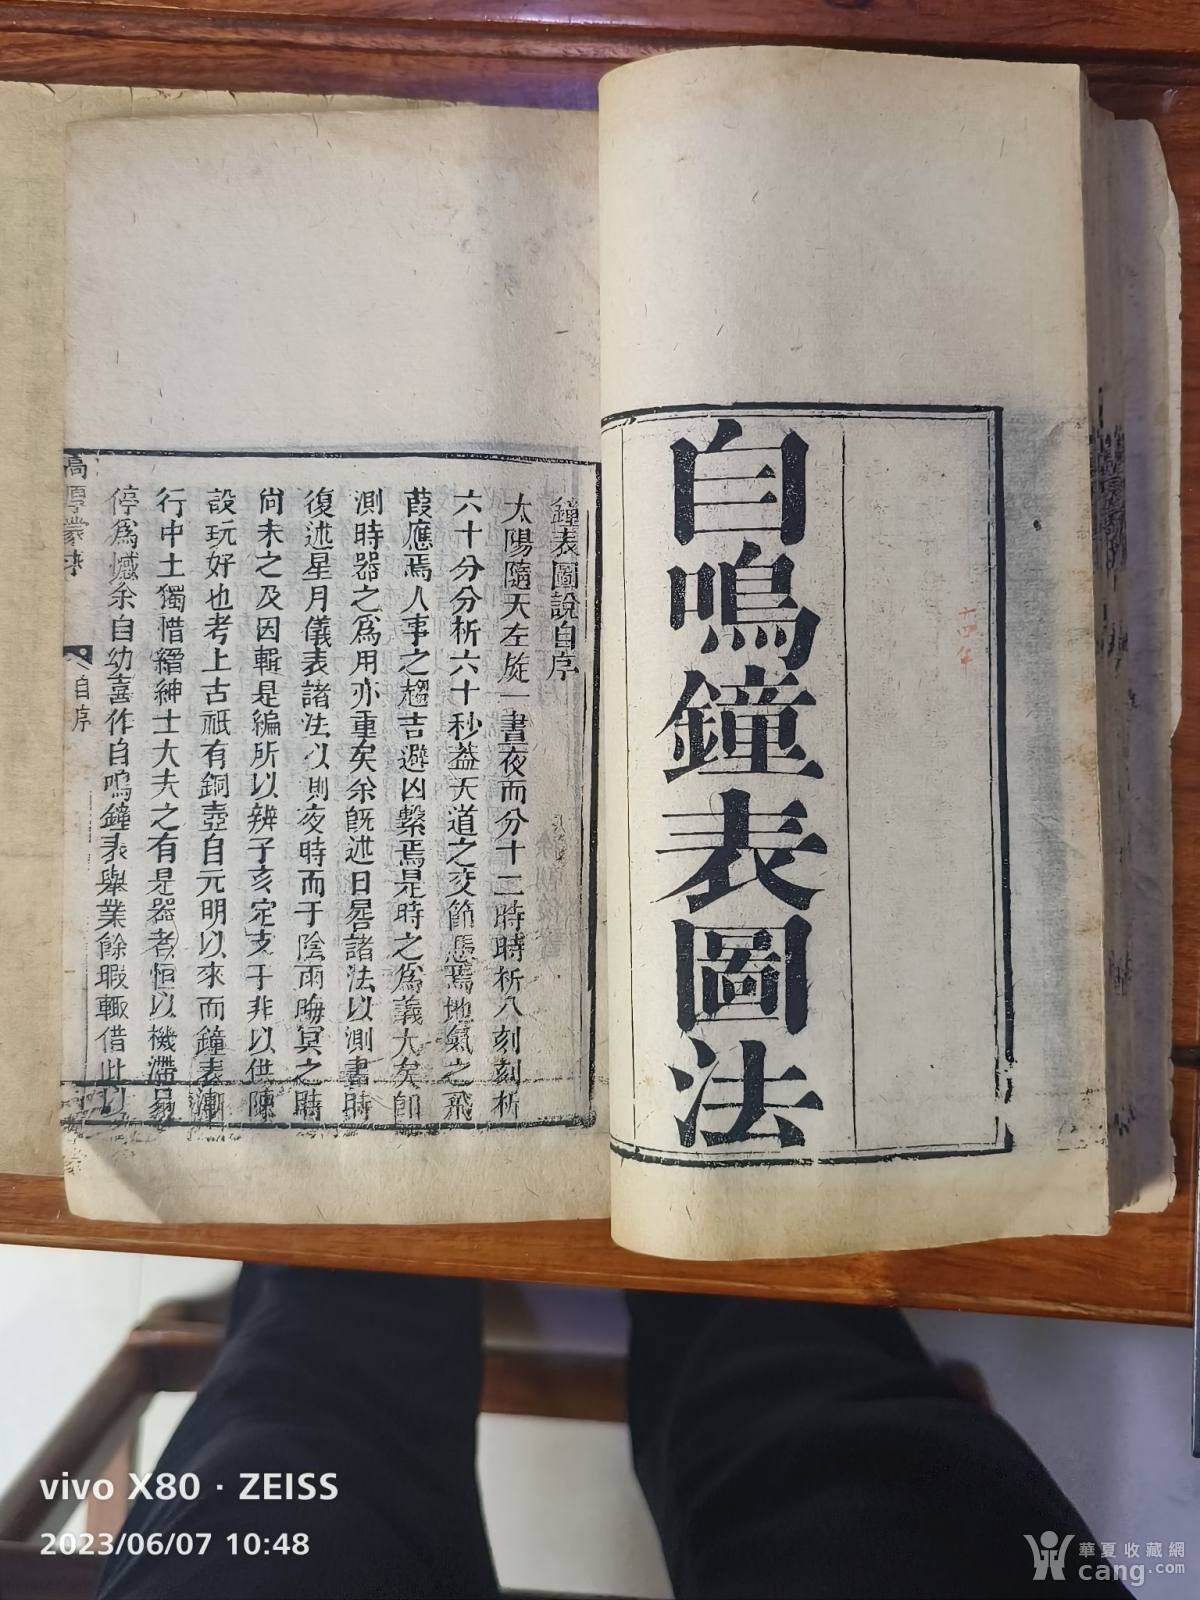 自鳴鐘表圖法
十四年
鐘表圖說自序
太陽隨天左旋一晝夜而分十二時時析八刻刻析
六十分分析六十秒蓋天道之交節憑焉地氣之飛
葭應焉人事之趨吉避凶繫焉是時之爲義大矣卽
測時器之爲用亦重矣余旣述日晷諸法以測晝時
復述星月儀表諸法以測夜時而于陰雨晦冥之時
尙未之及因輯是編所以辨子亥定支干非以供陳
設玩好也考上古祇有銅壺自元明以來而鐘表漸
行中土獨惜縉紳士大夫之有是器者恒以機滯
停爲憾余自幼喜作自鳴鐘表舉業餘暇輒借此以
高厚蒙求
自序
vivo X80 · ZEISS
2023/06/07 10:48
華夏收藏網
cang.com